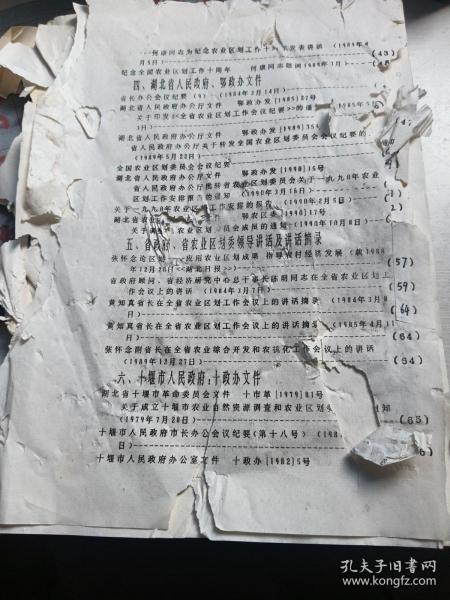 何康同志为纪念农业区划工作十周年发表讲话 (1989年4
月5日) (43)
纪念全国农业区划工作十周年 何康同志题词 (1989年3月)
四、湖北省人民政府、鄂政办文件
省长办公会议纪要 (1984年2月14日)
湖北省人民政府办公厅文件 鄂政办发[1985]87号
关于印发《全省农业区划工作会议纪要》的通
湖北省人民政府办公厅文件 鄂政办发[1989]35
省人民政府办公厅关于转发全国农业区划委员会会议纪要的
(1989年5月22日)
全国农业区划委员会会议纪要
湖北省人民政府办公厅文件 鄂政办发[1990]15号
省人民政府办公厅批转省农业区划委员会关于一九九〇年农业
区划工作安排报告的通知 (1990年3月16日)
关于一九九〇年农业区划工作安排的报告 (1990年2月5日)
鄂农区委[1990]17号
成员的通知 (1990年10月8日)
五、省政府、省农业区划委领导讲话及讲话摘录
张怀念 应用农业区划成果 指导农村经济发展 (载1988
年12月20日《湖北日报》) (57)
省政府顾问、省经济研究中心总干事长陈明同志在全省农业区划工
作会议上的讲话 (1984年3月7日) (59)
黄知真省长在全省农业区划工作会议上的讲话摘录 (1984年3月8
日) (64)
黄知真省长在全省农业区划工作会议上的讲话摘录 (1985年4月11
日) (64)
张怀念副省长在全省农业综合开发和农机化工作会议上的讲话
(1989年12月27日) (64)
六、十堰市人民政府、十政办文件
湖北省十堰市革命委员会文件 十市革[1979]81号
关于成立十堰市农业自然资源调查和农业区划 知
(1979年7月28日) (65)
十堰市人民政府市长办公会议纪要(第十八号) (198
日)
十堰市人民政府办公室文件 十政办[1982]5号
孔夫子旧书网
www.kongfz.com